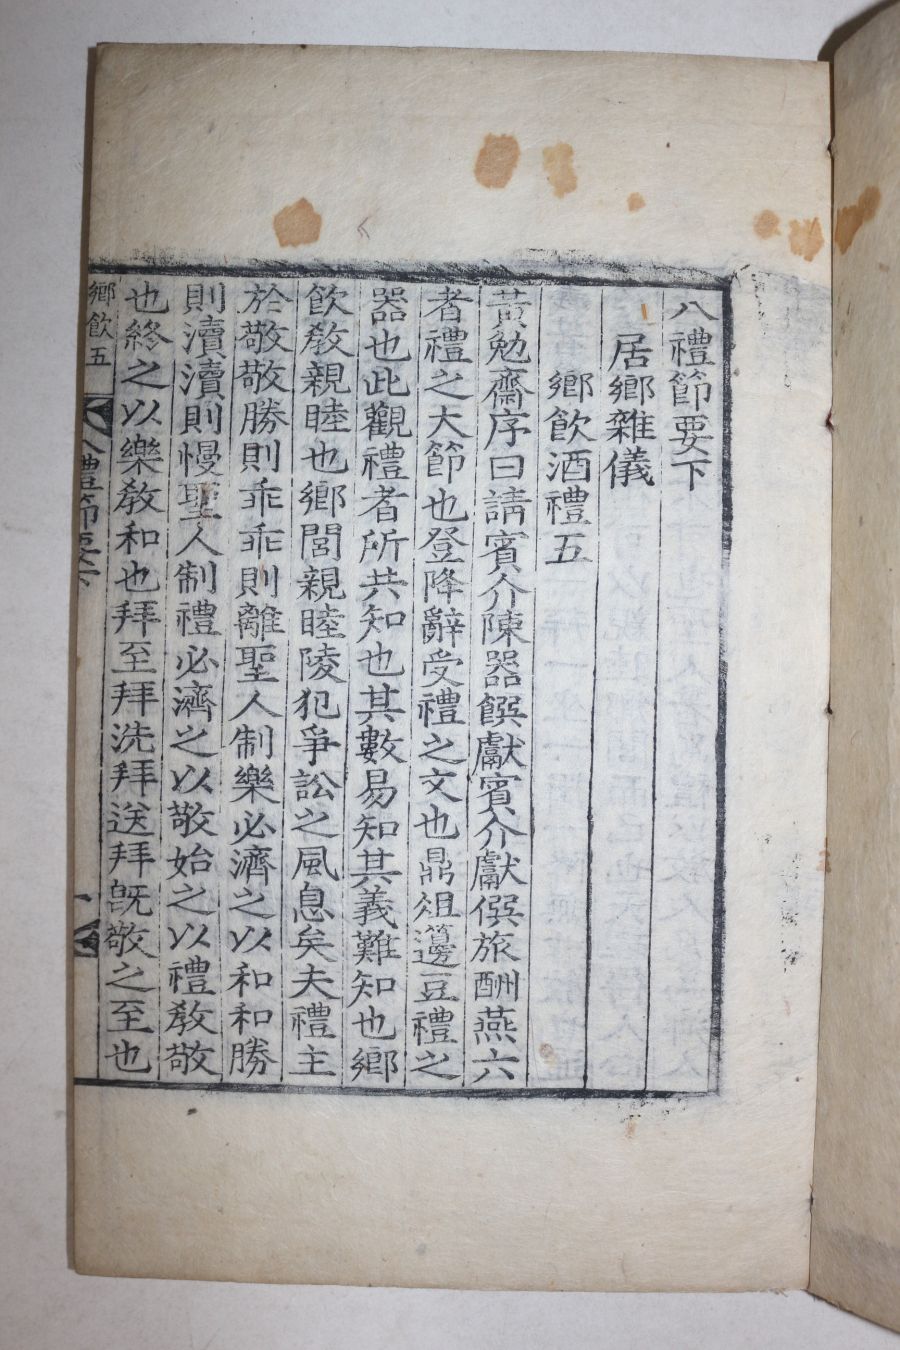 八禮節要下
居鄕雜儀
鄕飮酒禮五
黃勉齋序曰請賓介陳器饌獻賓介獻僎旅酬燕六
者禮之大節也登降辭受禮之文也鼎俎籩豆禮之
器也此觀禮者所共知也其數易知其義難知也鄕
飮敎親睦也鄕閭親睦陵犯爭訟之風息矣夫禮主
於敬敬勝則乖乖則離聖人制樂必濟之以和和勝
則瀆瀆則慢聖人制禮必濟之以敬始之以禮敎敬
也終之以樂敎和也拜至拜洗拜送拜旣敬之至也
鄕飮五
八禮節要下
一